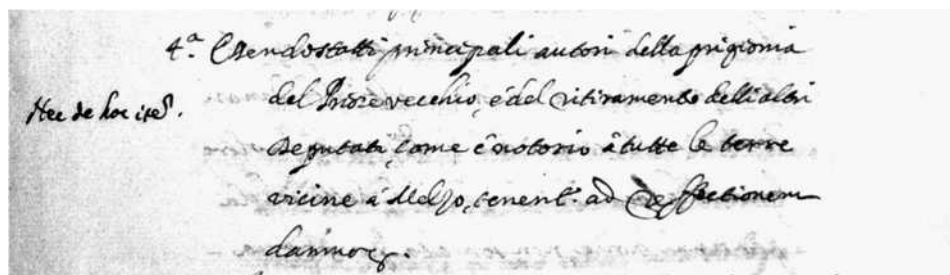 4.ª Essendo stati principali autori della prigionia
del Priore vecchio, e del ritiramento delli altri
Nec de hoc
deputati, come è notorio à tutte le terre
vicine à Melzo, tenent.r ad Refectionem
damnor.